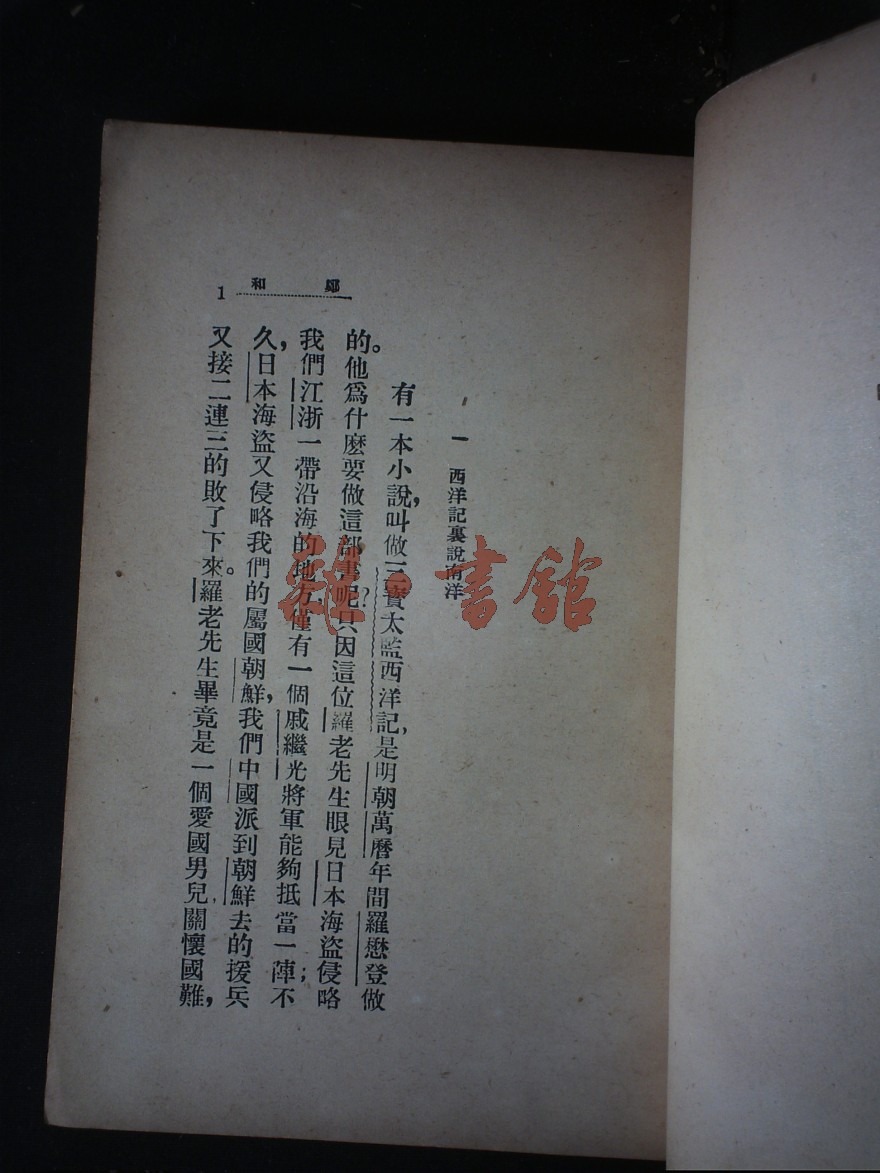 鄭和
1
一 西洋記裏說南洋
有一本小說，叫做三寶太監西洋記，是明朝萬曆年間羅懋登做
的。他爲什麽要做這部書呢？只因這位羅老先生眼見日本海盜侵略
我們江浙一帶沿海的地方，僅有一個戚繼光將軍能夠抵當一陣；不
久，日本海盜又侵略我們的屬國朝鮮，我們中國派到朝鮮去的援兵
又接二連三的敗了下來。羅老先生畢竟是一個愛國男兒，關懷國難，
雜·書館